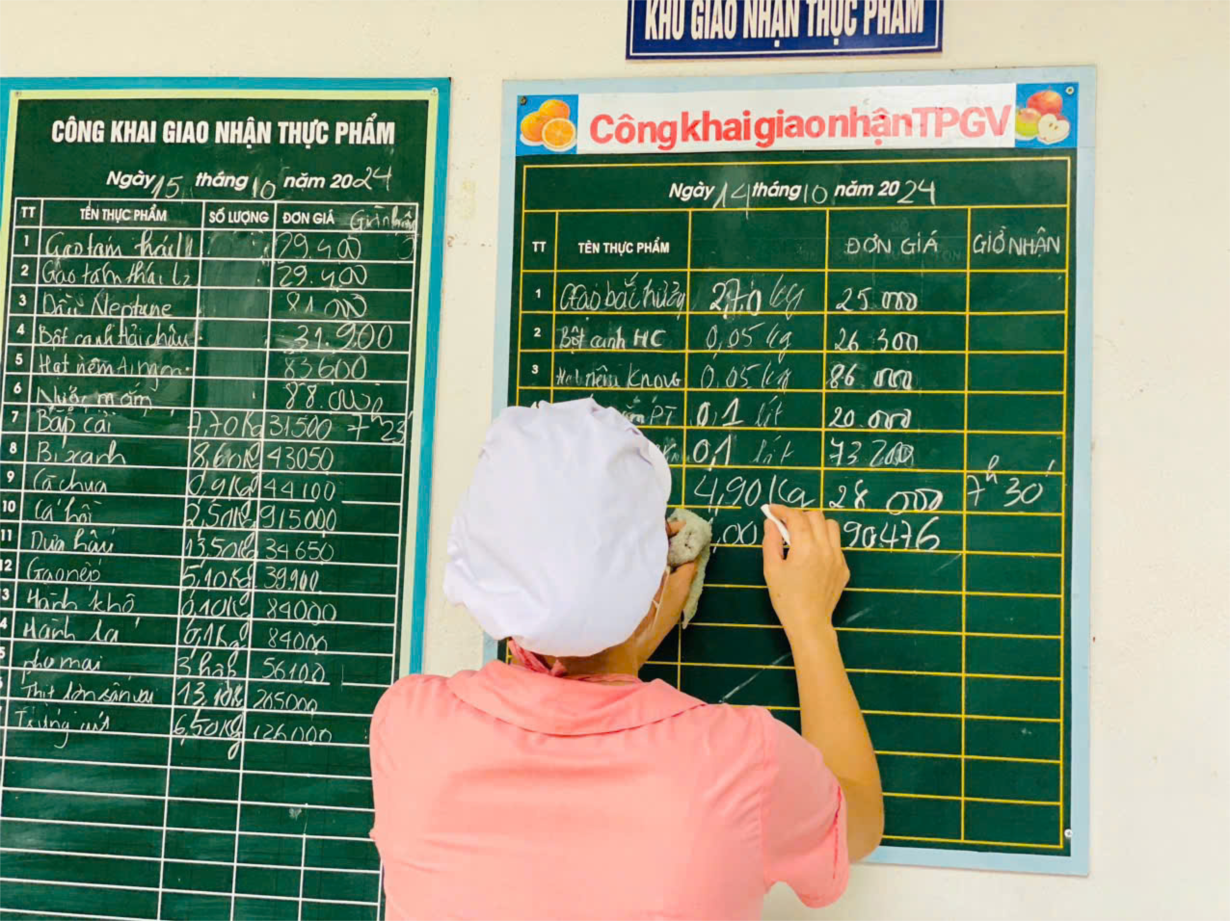 KHU GIAO NHẬN THỰC PHẨM
CÔNG KHAI GIAO NHẬN THỰC PHẨM
Ngày 15 tháng 10 năm 2024
TT TÊN THỰC PHẨM SỐ LƯỢNG ĐƠN GIÁ Giờ nhận
1 Gạo tám thái 29.400
2 Gạo tám thái L2 29.400
3 Dầu Neptune 81.000
4 Bột canh Hải châu 31.900
5 Hạt nêm 83600
6 Nước mắm 88.000
7 Bắp cải 7,70Kg 31500 7h23
8 Bí xanh 8,60Kg 43050
9 Cà chua 0,9Kg 44100
10 Cá hồi 2,50Kg 915000
11 Dưa hấu 13,50Kg 34650
12 Gạo nếp 5,10Kg 39900
3 Hành khô 0,10Kg 84000
4 Hành lá 0,1Kg 84000
5 pho mai 3 hộp 56100
Thịt lợn sấn vai 13,10Kg
Trứng cút 6,50Kg 126000
Công khai giao nhận TPGV
Ngày 14 tháng 10 năm 2024
TT TÊN THỰC PHẨM ĐƠN GIÁ GIỜ NHẬN
1 Gạo bắc hương 27,0 kg 25.000
2 Bột canh HC 0,05 kg 26.300
3 Hạt nêm Knor 0,05 kg 86.000
PT 0,1 lít 20.000
0,1 lít 73.200
4,90 Kg 28.000 7h30'
,00 90.476